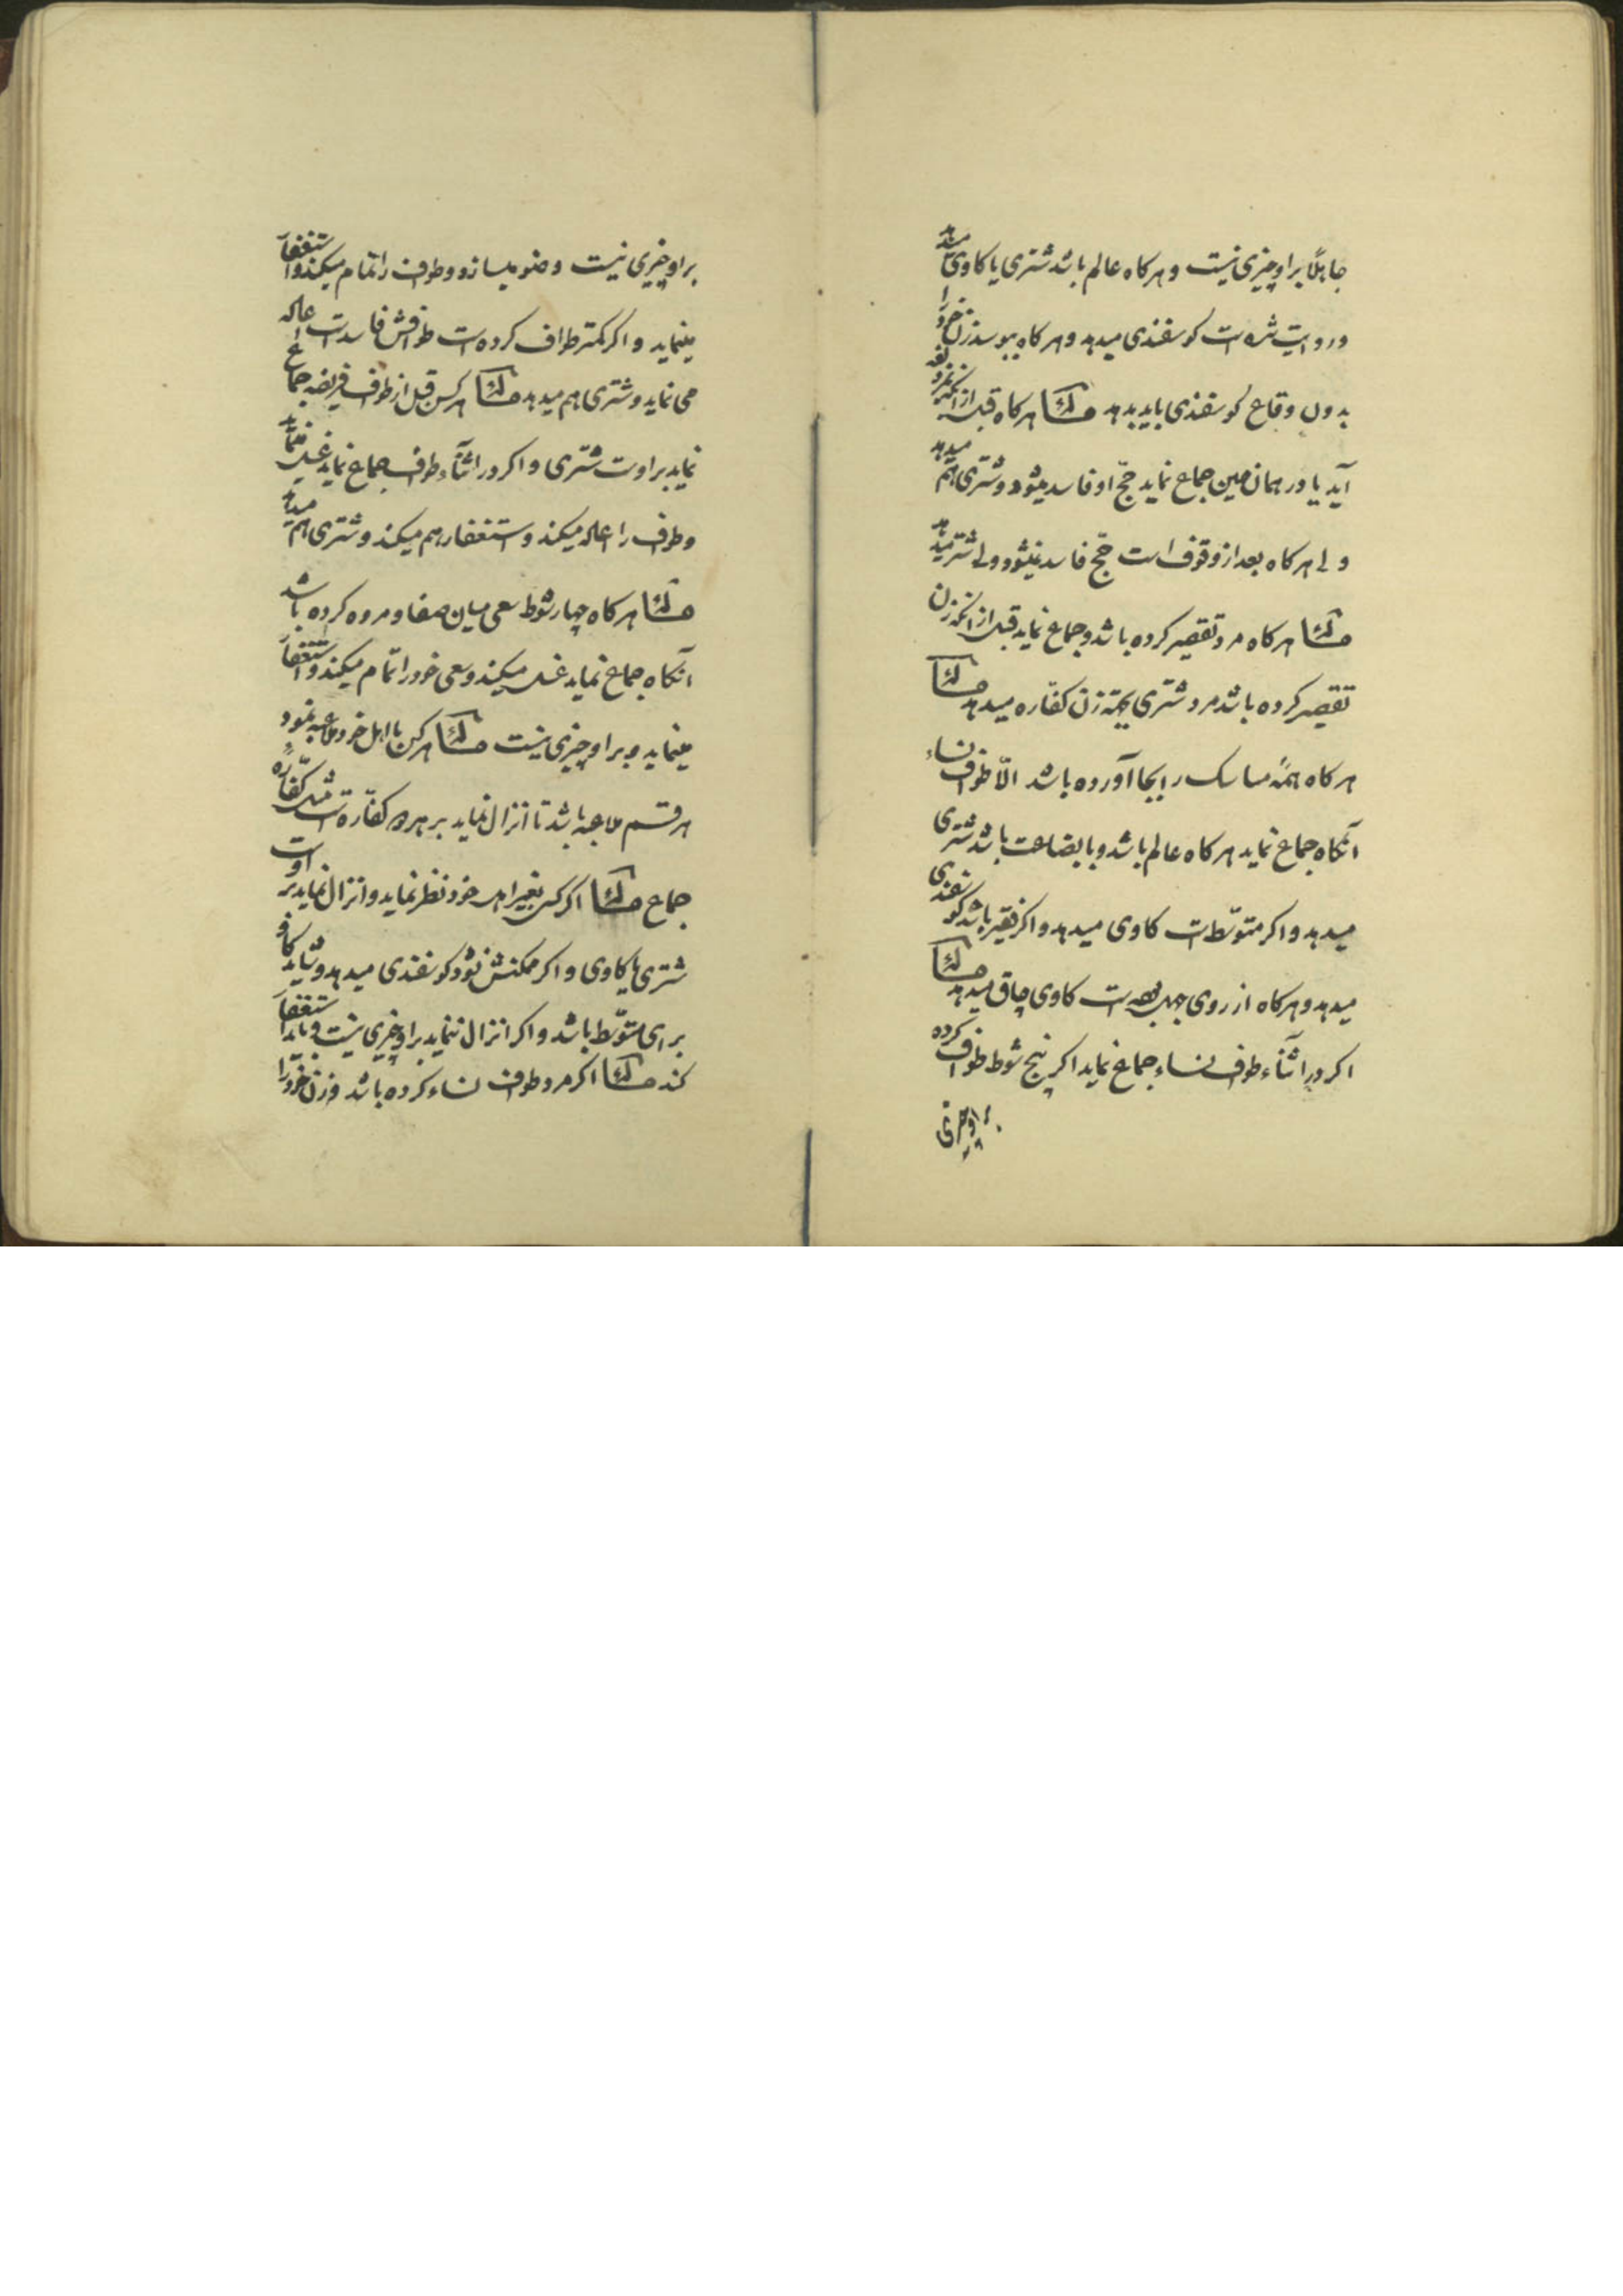 جاهلًا براو چیزی نیست و هرکاه عالم باشد شتری یا کاوی میدهد
و روایت شده است کوسفندی میدهد و هرکاه ببوسد زن خود را
بدون وقاع کوسفندی باید بدهد مسئله هرکاه قبل از آنکه بمزدلفه
آید یا در همان حین جماع نماید حجّ او فاسد میشود و شتری هم میدهد
ولی هرکاه بعد از وقوف است حجّ فاسد نمیشود ولی شتر میدهد
مسئله هرکاه مرد تقصیر کرده باشد و جماع نماید قبل از آنکه زن
تقصیر کرده باشد مرد شتری بجهة زن کفّاره میدهد مسئله
هرکاه همهٔ مناسک را بجا آورده باشد الّا طواف نساء
آنکاه جماع نماید هرکاه عالم باشد و با بضاعت باشد شتری
میدهد و اکر متوسّط است کاوی میدهد و اکر فقیر باشد کوسفندی
میدهد و هرکاه از روی جهل بوده است کاوی چاق میدهد مسئله
اکر در اثنآء طواف نساء جماع نماید اکر پنج شوط طواف کرده
براو چیزی
براو چیزی نیست وضو میسازد و طواف را تمام میکند و استغفار
مینماید و اکر کمتر طواف کرده است طوافش فاسد است اعاده
می نماید و شتری هم میدهد مسئله هرکس قبل از طواف فریضه جماع
نماید براوست شتری و اکر در اثنآء طواف جماع نماید غسل مینماید
و طواف را اعاده میکند و استغفار هم میکند و شتری هم میدهد
مسئله هرکاه چهار شوط سعی میان صفا و مروه کرده باشد
آنکاه جماع نماید غسل میکند و سعی خود را تمام میکند و استغفار
مینماید و براو چیزی نیست مسئله هرکس با اهل خود ملاعبه نمود
هر قسم ملاعبه باشد تا انزال نماید بر هر دو کفّاره است مثل کفّارهٔ
جماع مسئله اکر کسی بغیر اهل خود نظر نماید و انزال نماید بر اوست
شتری یا کاوی و اکر ممکنش نشود کوسفندی میدهد و شاید کاو
برای متوسّط باشد و اکر انزال ننماید براو چیزی نیست و باید استغفار
کند مسئله اکر مرد طواف نساء کرده باشد و زن خود را